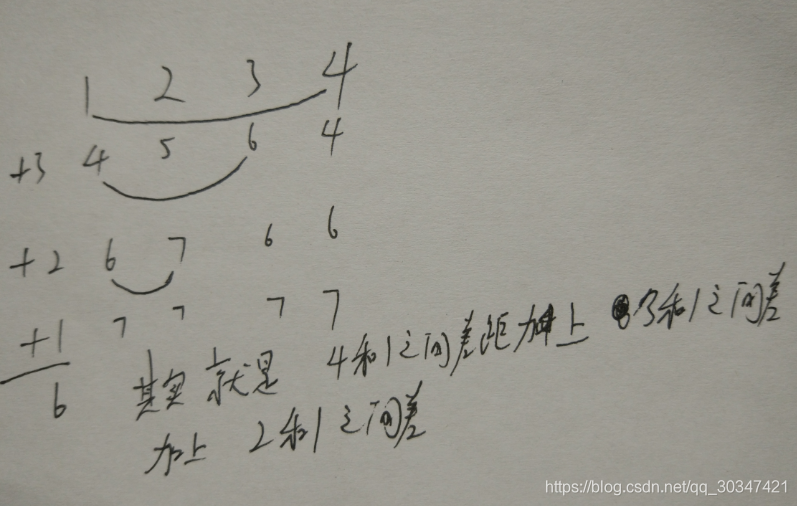 1 2 3 4
+3 4 5 6 4
+2 6 7 6 6
+1 7 7 7 7
6
其实就是 4和1之间差距加上 3和1之间差
加上 2和1之间差
https://blog.csdn.net/qq_30347421